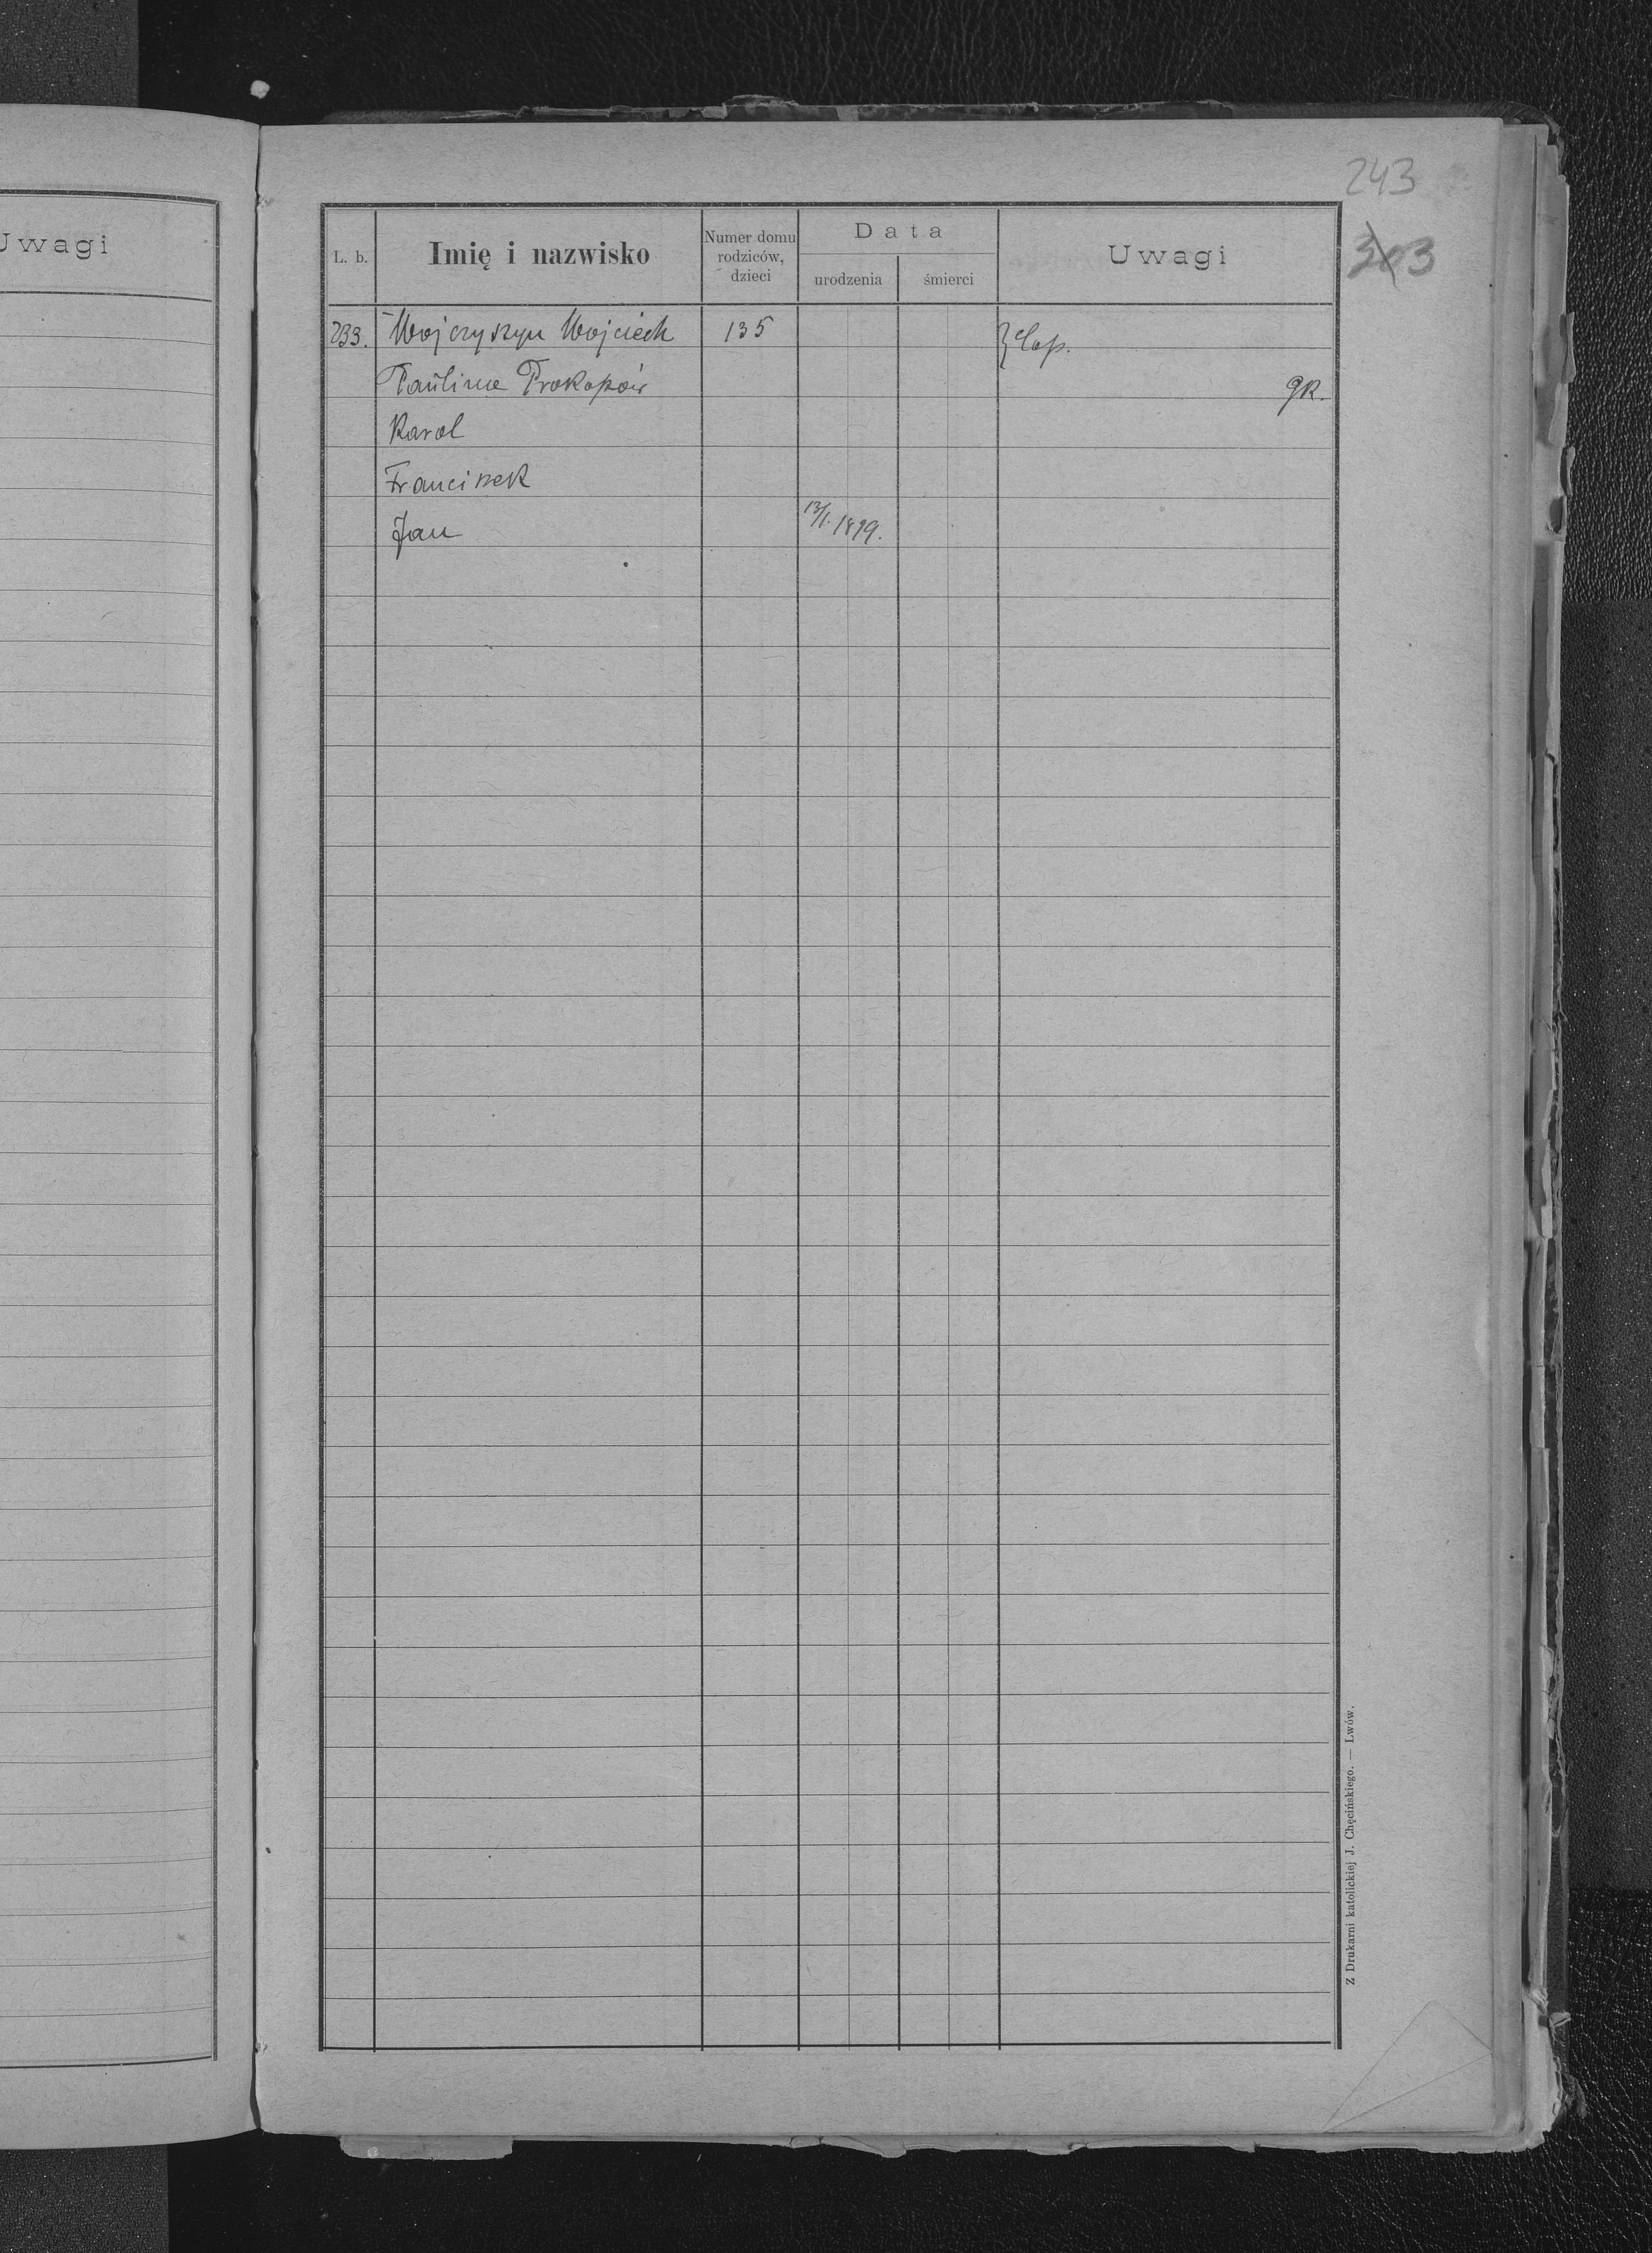 Uwagi
243
303
L. b. Imię i nazwisko Numer domu rodziców, dzieci Data urodzenia śmierci Uwagi
233. Wojczyszyn Wojciech 135 Cop.
Paulina Prokopów gk.
Karol
Franciszek
Jan 13/1. 1899.
Z Drukarni katolickiej J. Chęcińskiego. — Lwów.